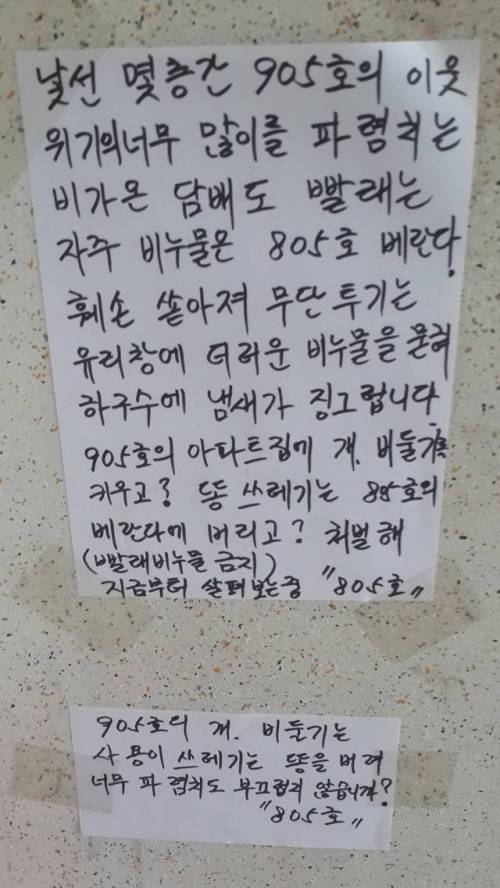 낯선 몇층간 905호의 이웃
위기의너무 많이를 파렴치는
비가온 담배도 빨래는
자주 비누물은 805호 베란다.
훼손 쏟아져 무단투기는
유리창에 더러운 비누물을 묻혀
하구수에 냄새가 징그럽니다
905호의 아파트집에 개. 비둘기를
키우고? 똥 쓰레기는 805호의
베란다에 버리고? 처벌해
(빨래비누물 금지)
지금부터 살펴보는중 "805호"
905호의 개. 비둘기는
사용이 쓰레기는 똥을 버려
너무 파렴치도 부끄럽지 않습니까?
"805호"